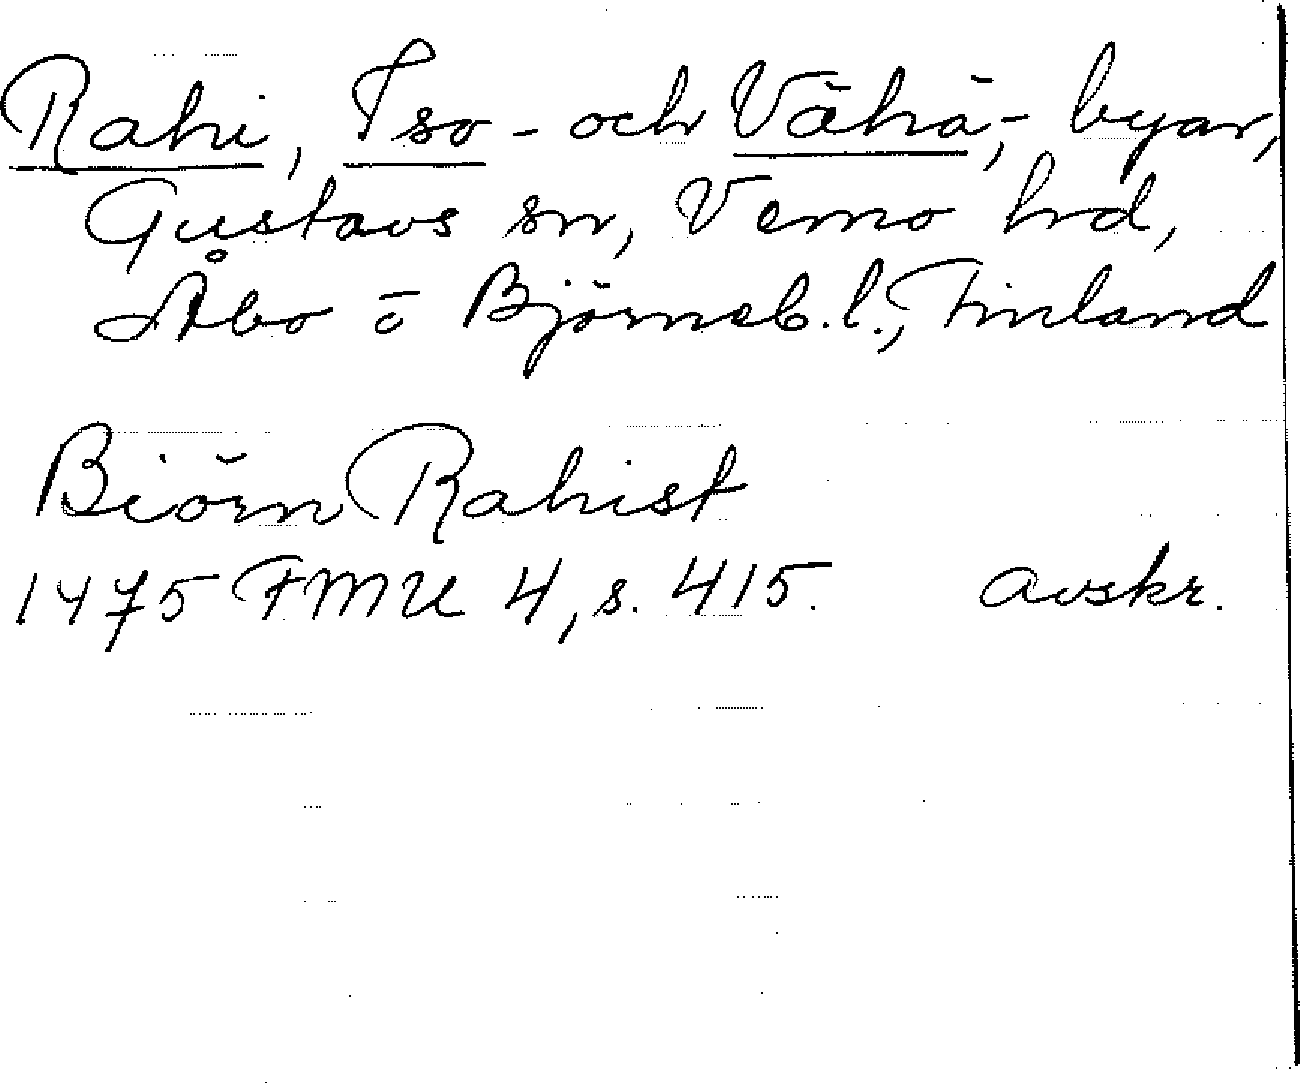 Rahi, Iso- och Vähä-, byar,
Gustavs sn, Vemo hrd,
Åbo o Björneb. l., Finland
Biörn Rahist
1475 FMU 4, s. 415. avskr.